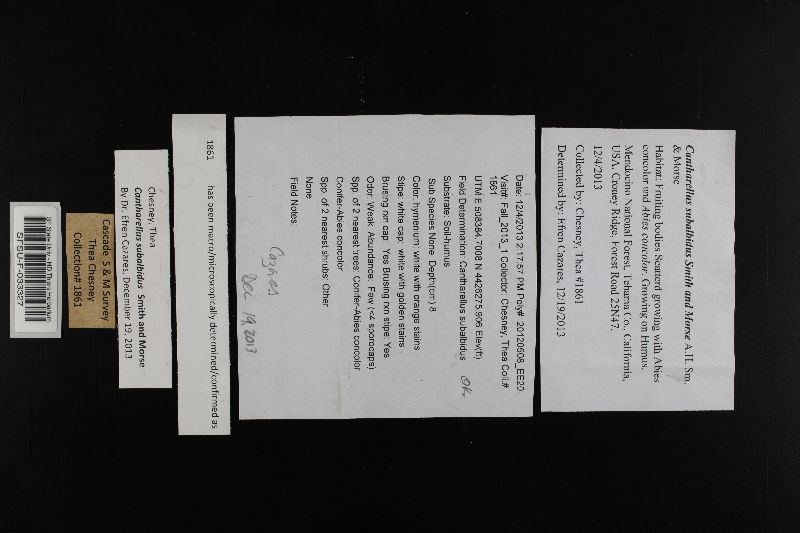 Cantharellus subalbidus Smith and Morse A.H. Sm.
& Morse
Habitat: Fruiting bodies Scattered growing with Abies
concolor and Abies concolor. Growing on Humus.
Mendocino National Forest, Tehama Co., California,
USA. Croney Ridge, Forest Road 25N47.
12/4/2013
Collected by: Chesney, Thea #1861
Determined by: Efren Cazares, 12/19/2013
Date: 12/4/2013 2:17:57 PM Poly# 20120608_EE20
Visit#: Fall_2013_1 Collector: Chesney, Thea Coll.#
1861
UTM E 508384.7008 N 4426275.906 Elev(ft)
Field Determination: Cantharellus subalbidus OK
Substrate: Soil-humus
Sub Species None Depth(cm) 8
Color: hymenium: white with orange stains
Stipe: white cap: white with golden stains
Brusing rxn cap: Yes Brusing rxn stipe: Yes
Odor: Weak Abundance: Few (<4 sporocarps)
Spp. of 2 nearest trees: Conifer-Abies concolor
Conifer-Abies concolor
Spp. of 2 nearest shrubs: Other
None
Field Notes:
Cazares
Dec 19, 2013
1861 has been macro/microscopically determined/confirmed as
Chesney, Thea
Cantharellus subalbidus Smith and Morse
By Dr. Efren Cazares, December 19, 2013
Cascade S & M Survey
Thea Chesney
Collection# 1861
SF State Univ - HD Thiers Herbarium
SFSU-F-033327